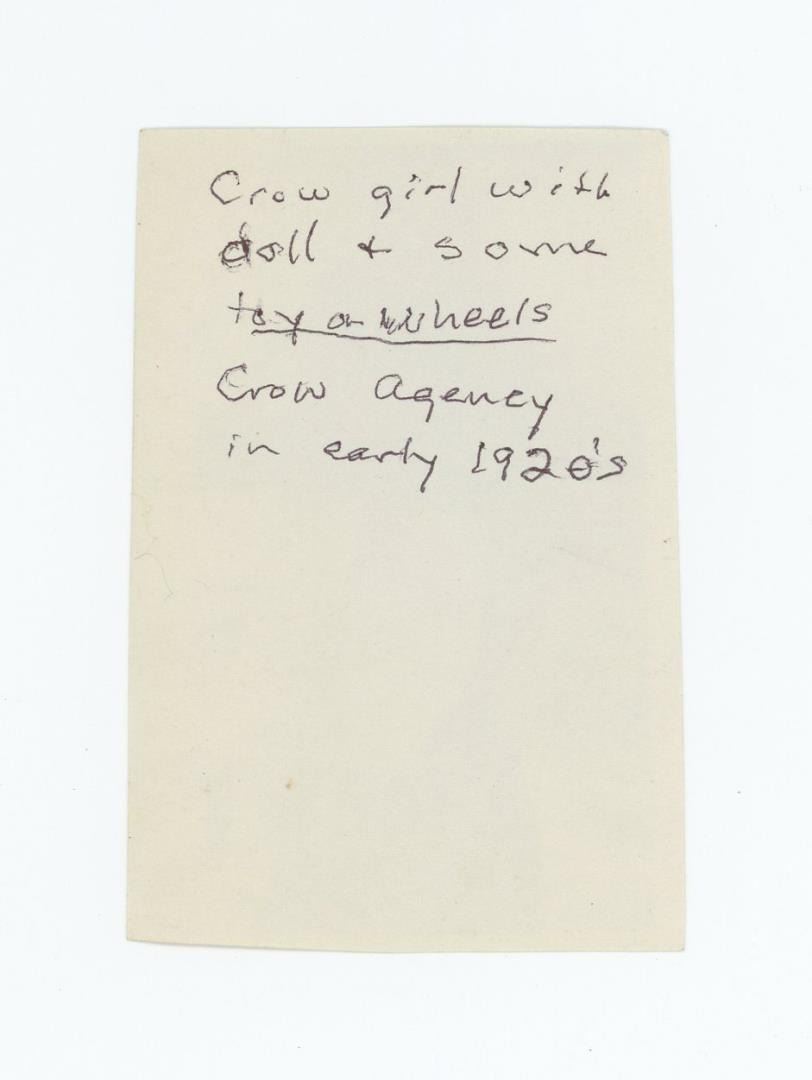 Crow girl with
doll & some
toy on wheels
Crow Agency
in early 1920's